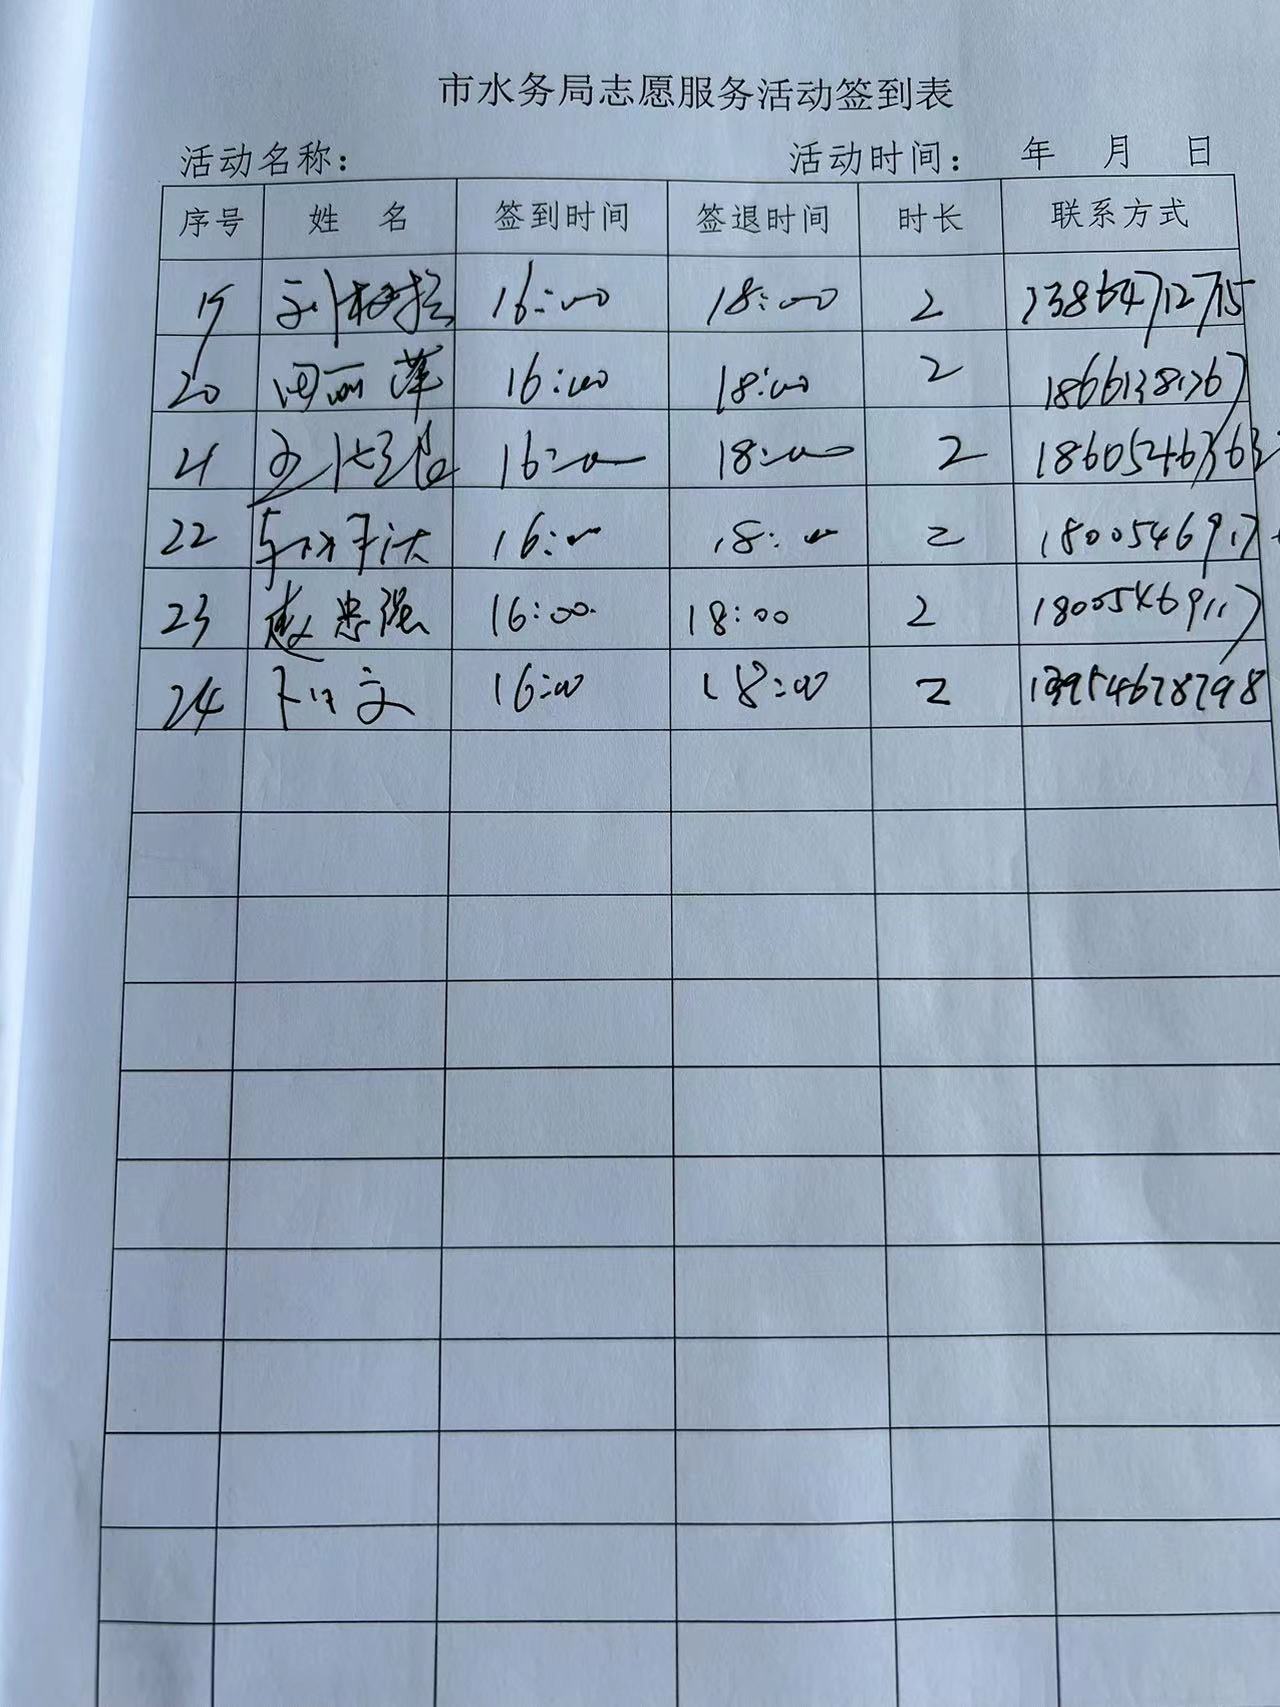 市水务局志愿服务活动签到表
活动名称： 活动时间： 年 月 日
序号 姓 名 签到时间 签退时间 时长 联系方式
19 16:00 18:00 2 13864712715
20 周丽萍 16:00 18:00 2
21 16:00 18:00 2
22 16:00 18:00 2
23 赵忠强 16:00 18:00 2 18005469117
24 16:00 18:00 2